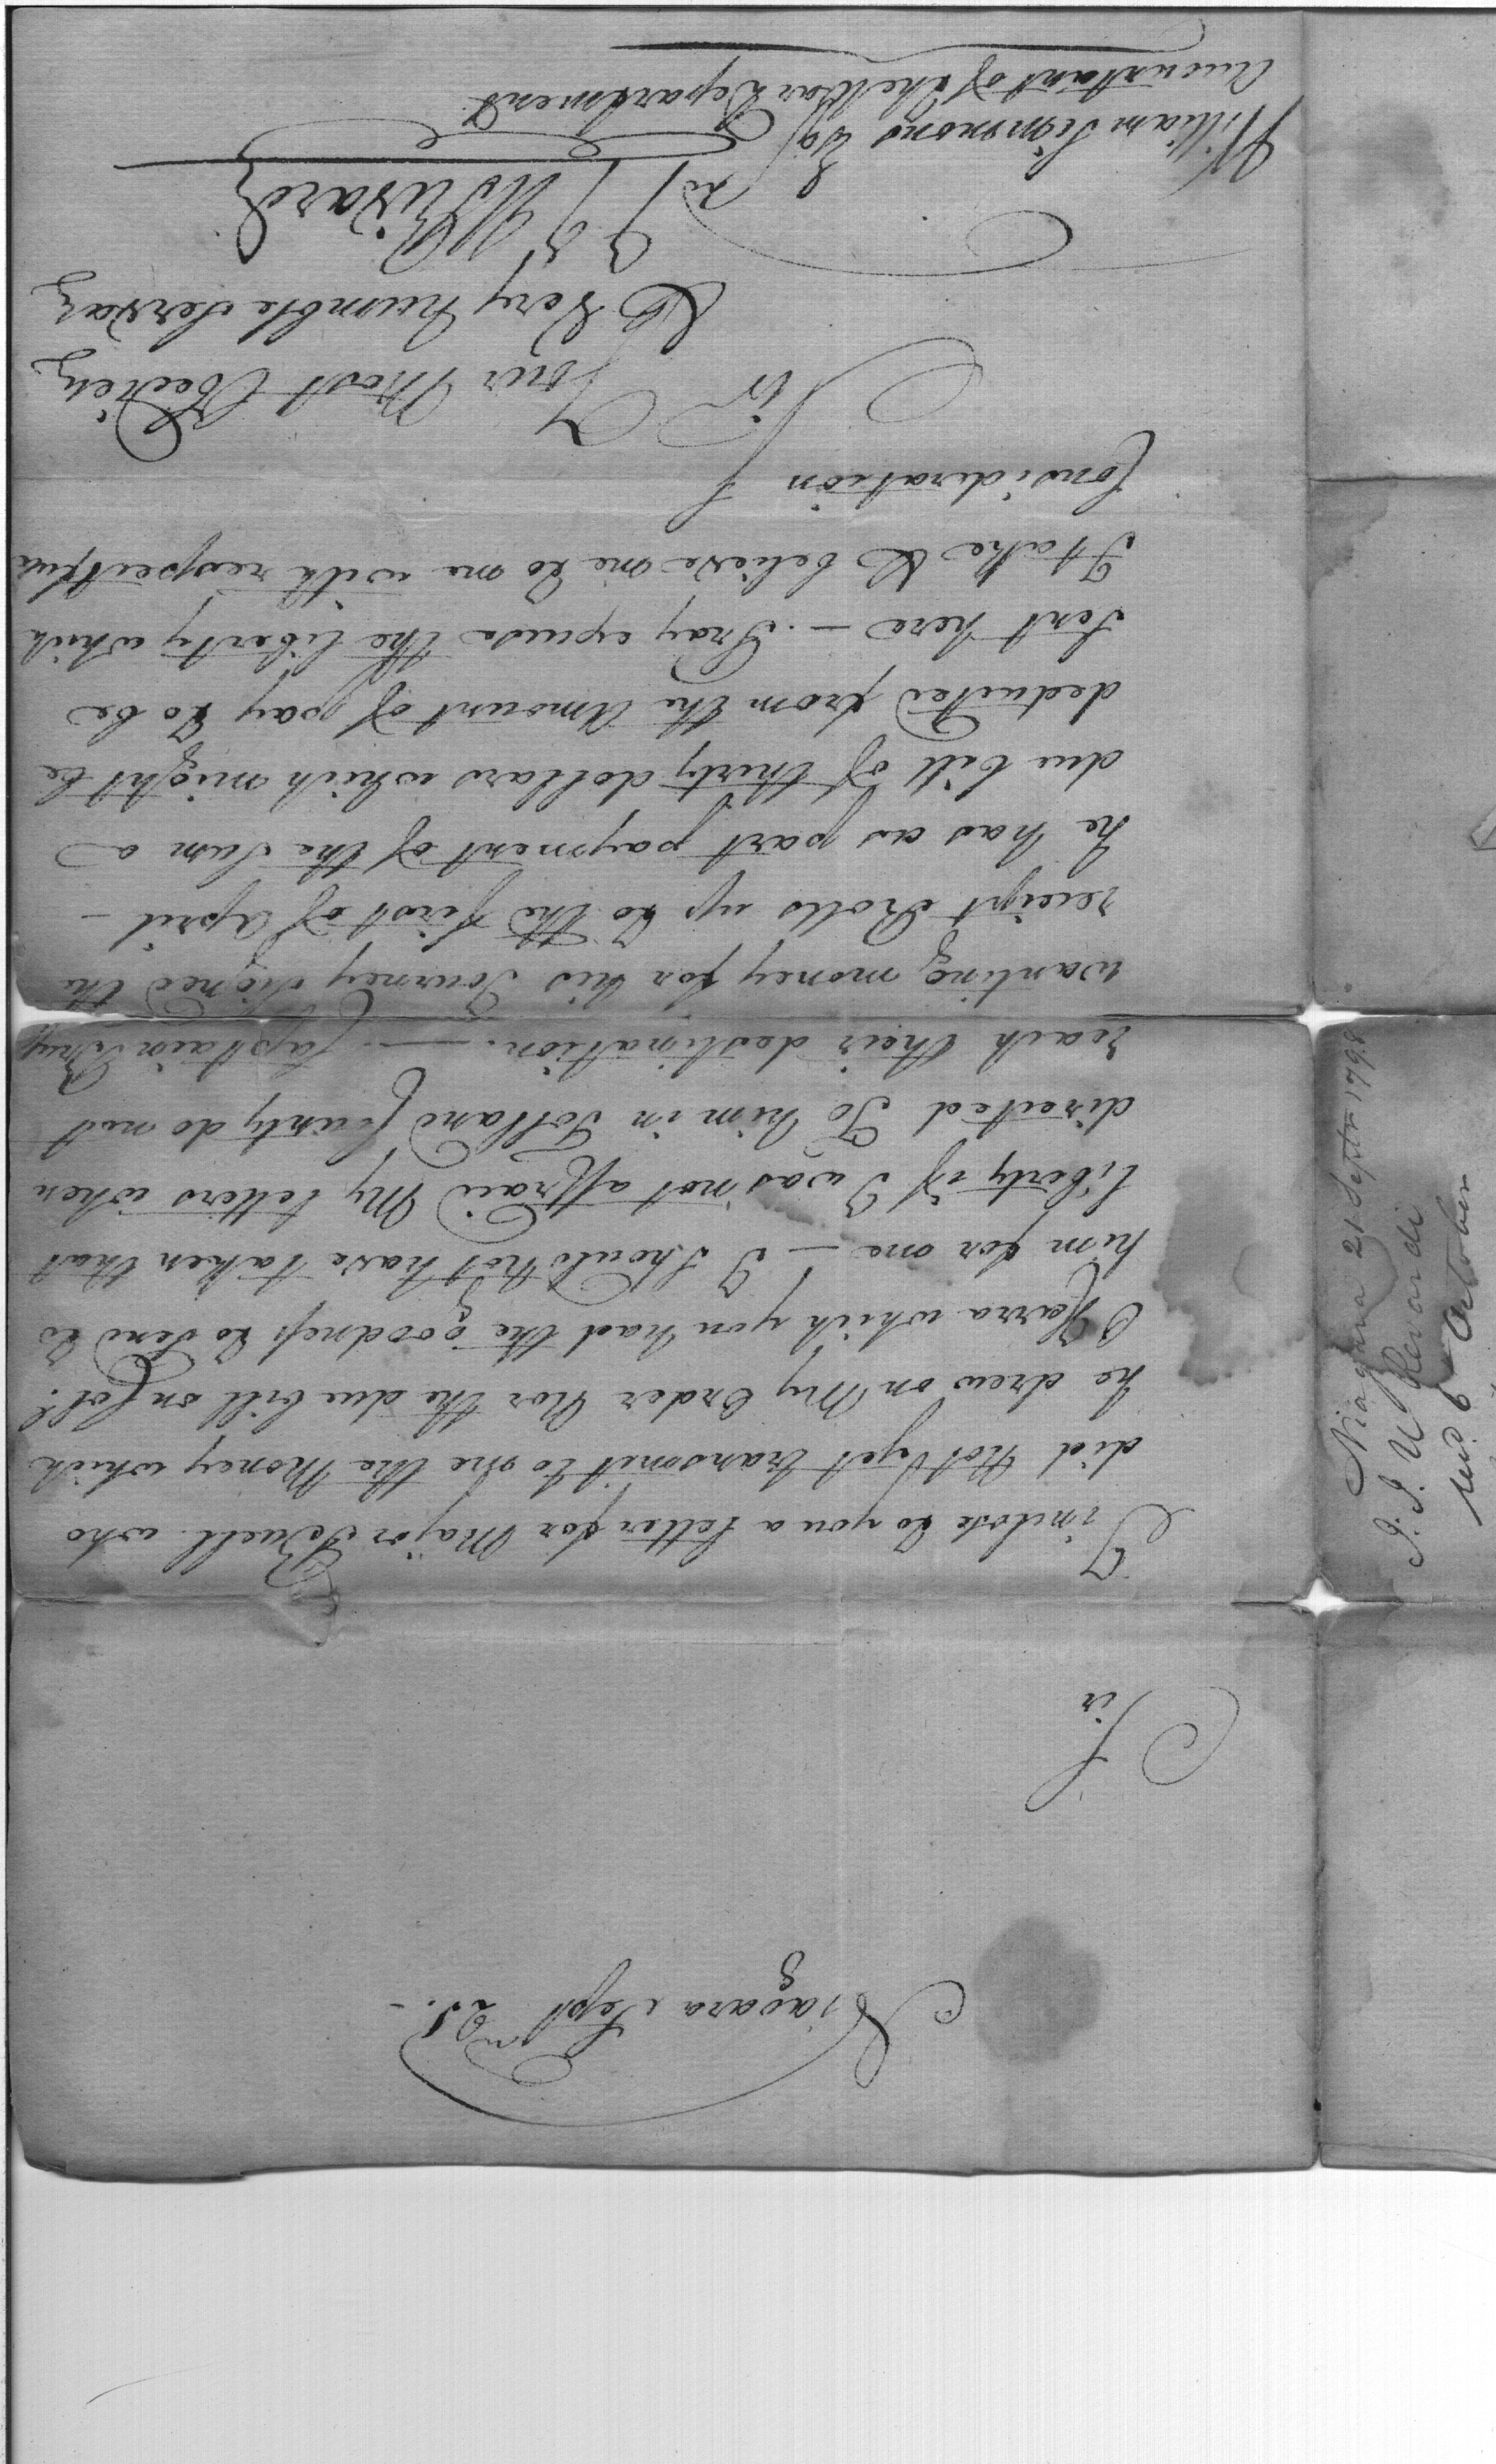 Niagara Sept 21. -
Sir
I inclose to you a letter for Major Buell who
did Not Yet transmit to me the Money which
he drew on My Order Nor the due bill on Col!
OHarra which you had the goodness to Send to
him for me — I Should Not have taken that
liberty if I was not affraid My letters when
directed To him in Tolland County do not
reach their destination. — Captain Bruff
wanting money for his Journey Signed the
receipt Rolls up to the first of April -
he has as part payment of the Sum a
due bill of thirty dollars which might be
deducted from the Amount of pay to be
Sent here — . Pray excuse the liberty which
I take & believe me to me with respectful
Consideration
Sir
Your Most Obedient
& Very humble Servant
J J U Rivardi
William Simmons Esq
Accountant of the War Department
Niagara 21 Septr 1798
J. J. U Revardi
recd 6 October